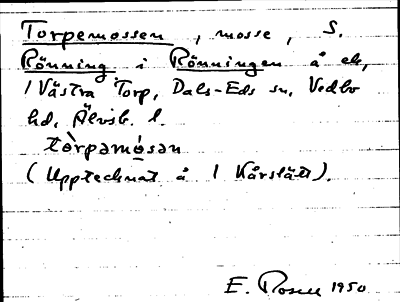 Torpemossen, mosse, S.
Rönning i Rönningen å ek,
1 Västra Torp, Dals-Eds sn, Vedbo
hd, Älvsb. l.
tòrpamósan
(Upptecknat å 1 Kårslätt).
E. Rosell 1950